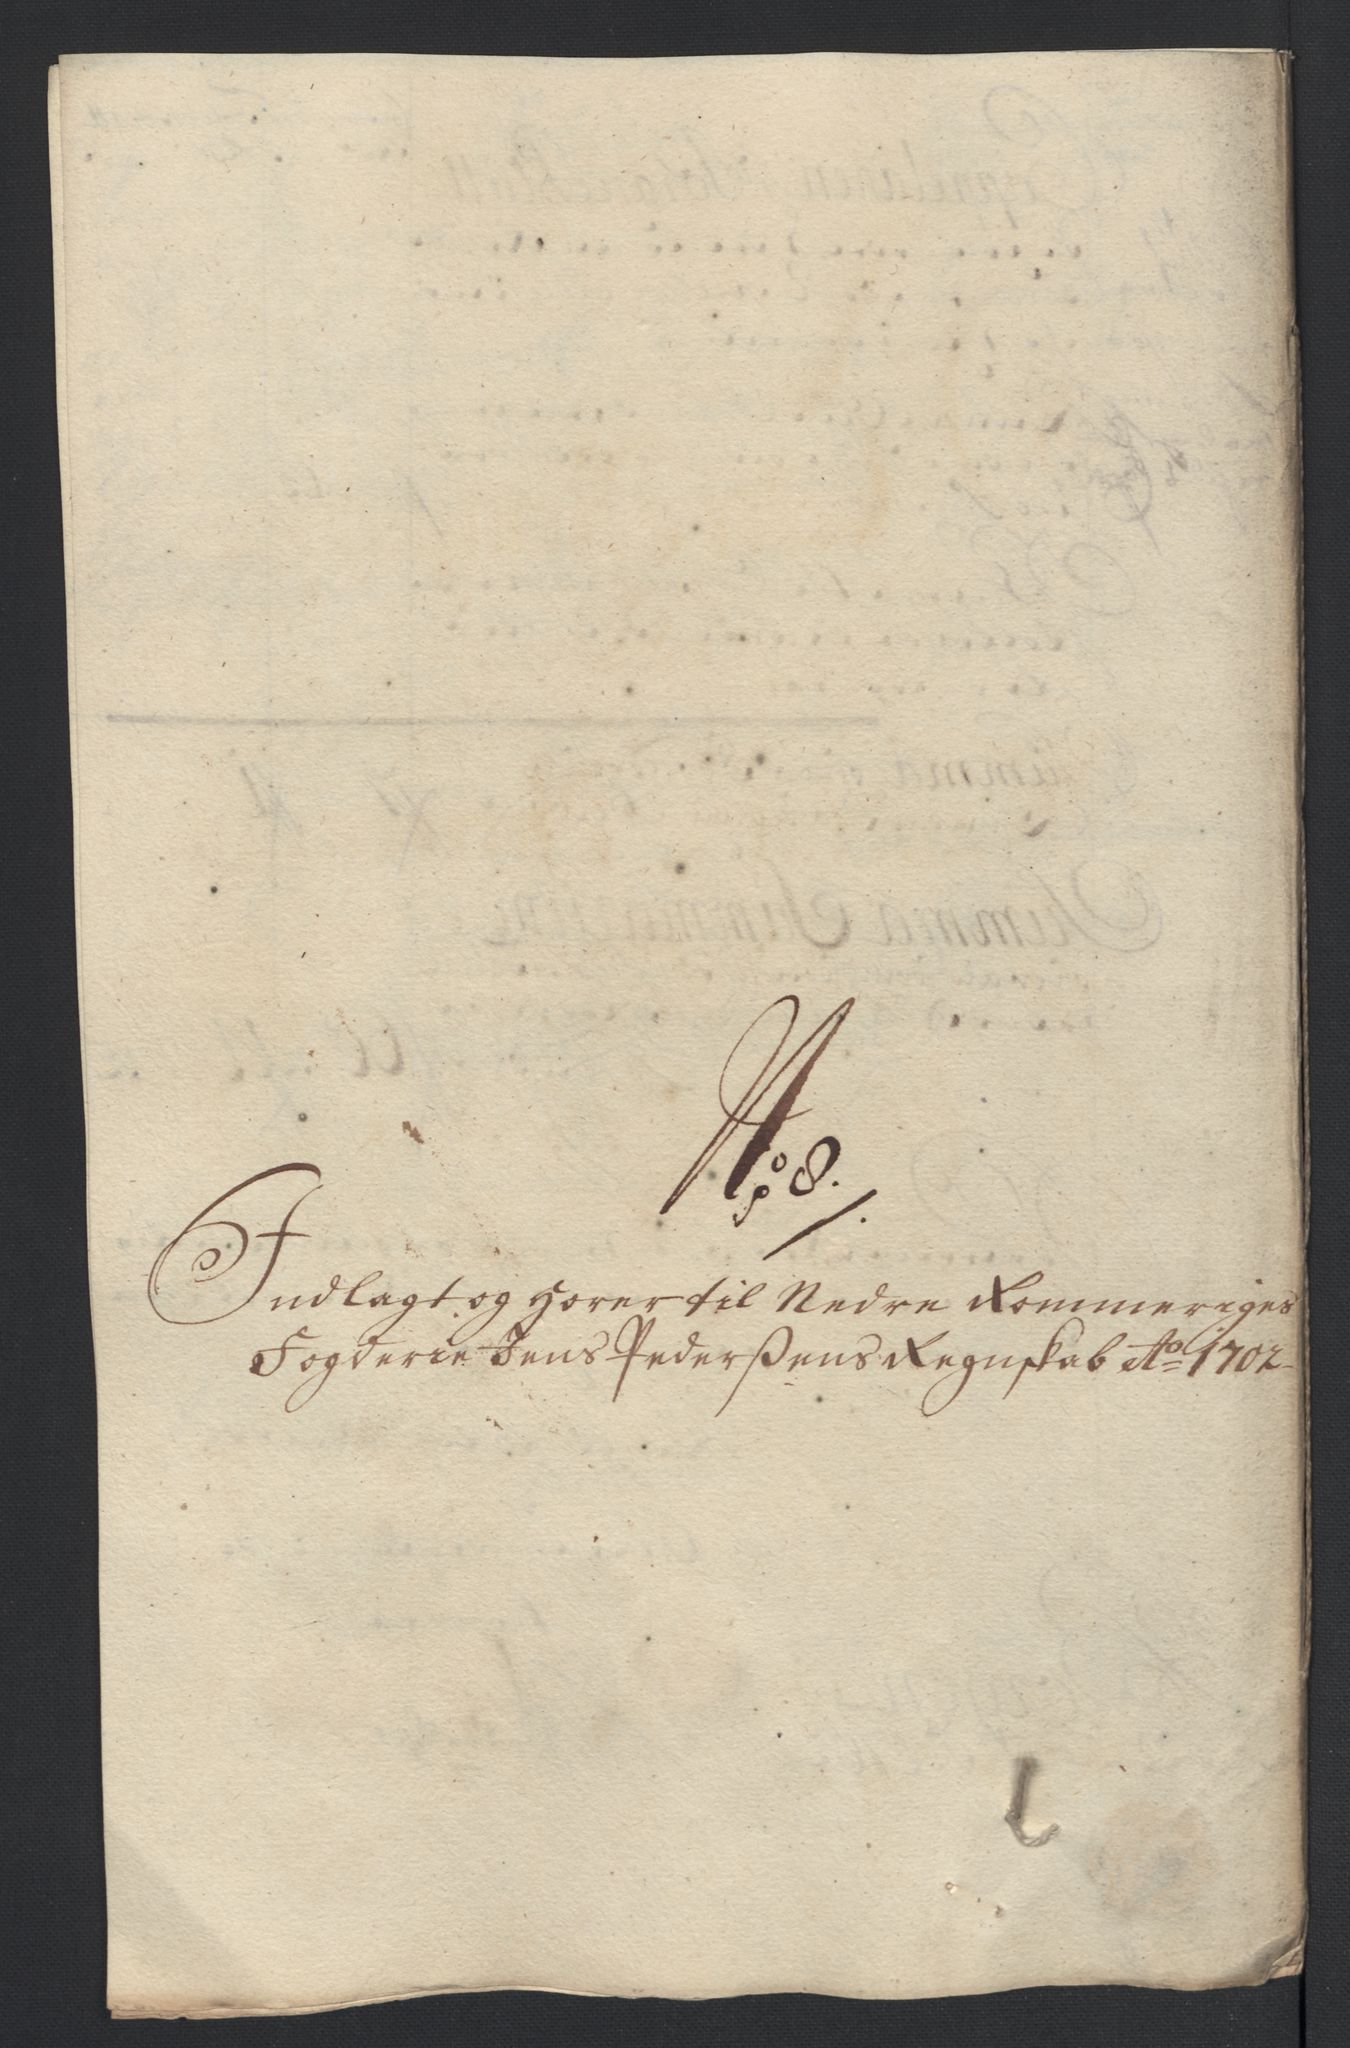 No 8.
Indlagt og hører til Nedre Rommeriges
Fogderie Jens Pederßens Regnskab Ao 1702